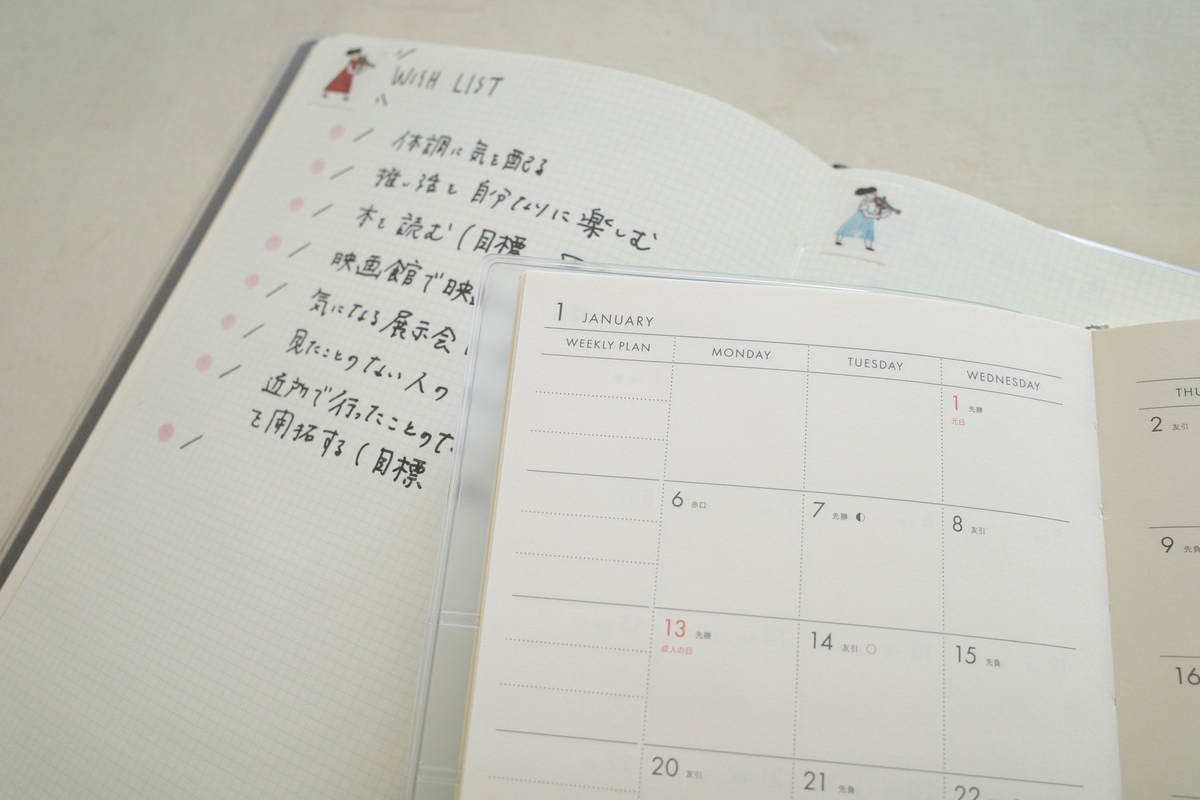 WISH LIST
体調に気を配る
推し活を自分なりに楽しむ
本を読む(目標
映画館で映
気になる展示会
見たことのない人の
近所で行ったことのな
を開拓する(目標
1 JANUARY
WEEKLY PLAN MONDAY TUESDAY WEDNESDAY THU
1 先勝
元日
2 友引
6 赤口 7 先勝 8 友引
9 先負
13 先勝 14 友引 15 先負
成人の日
16
20 友引 21 先負 22